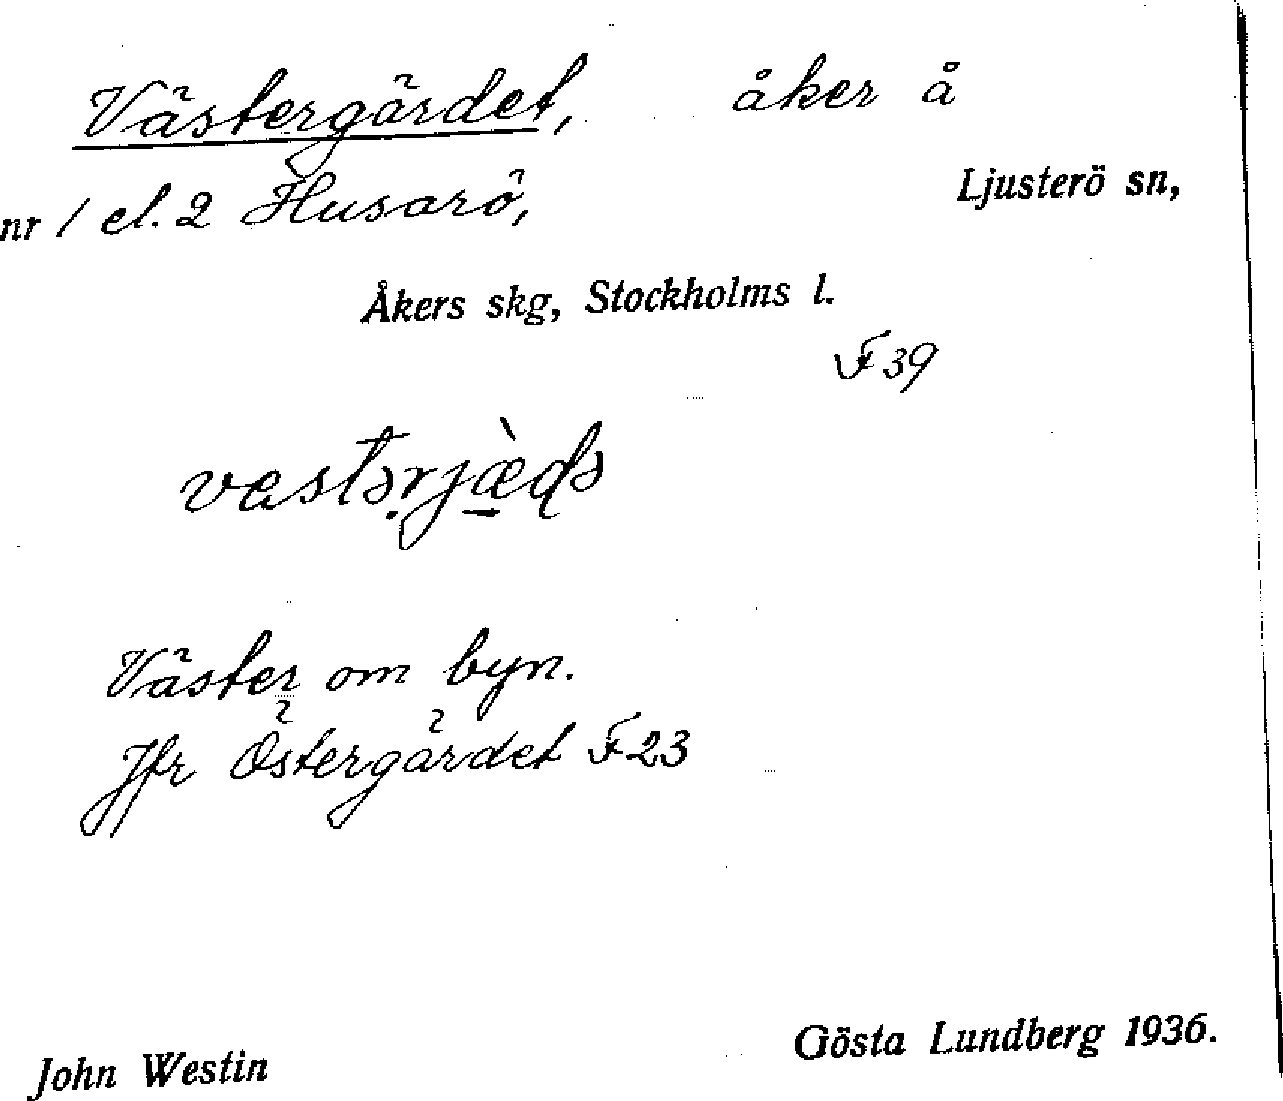 Västergärdet, åker å
nr 1 el. 2 Husarö, Ljusterö sn,
Åkers skg, Stockholms l.
F 39
Väster om byn.
Jfr Östergärdet F 23
John Westin Gösta Lundberg 1936.